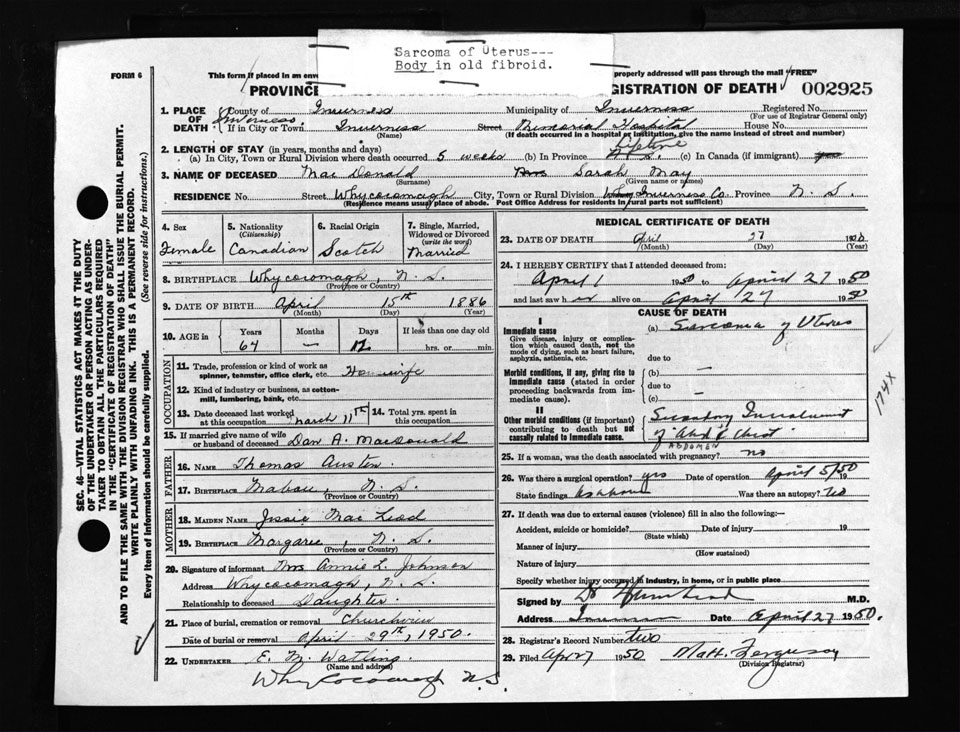 Sarcoma of Uterus---
Body in old fibroid.
FORM 6
This form if placed in an enve
properly addressed will pass through the mail "FREE"
PROVINC
GISTRATION OF DEATH
002925
1. PLACE OF DEATH
County of Inverness Municipality of Inverness Registered No.
(For use of Registrar General only)
If in City or Town Inverness Street Memorial Hospital House No.
(Name) (If death occurred in a hospital or institution, give the name instead of street and number)
2. LENGTH OF STAY (in years, months and days)
(a) In City, Town or Rural Division where death occurred 5 weeks (b) In Province Lifetime (c) In Canada (if immigrant)
3. NAME OF DECEASED Mac Donald Mrs Sarah May
(Surname) (Given name or names)
RESIDENCE No. Street Whycocomagh City, Town or Rural Division Inverness Co. Province N. S.
(Residence means usual place of abode. Post Office Address for residents in rural parts not sufficient)
4. Sex Female
5. Nationality (Citizenship) Canadian
6. Racial Origin Scotch
7. Single, Married, Widowed or Divorced (write the word) Married
8. BIRTHPLACE Whycocomagh, N. S.
(Province or Country)
9. DATE OF BIRTH April 15th 1886
(Month) (Day) (Year)
10. AGE in Years Months Days If less than one day old
64 — 12 hrs. or min.
OCCUPATION
11. Trade, profession or kind of work as spinner, teamster, office clerk, etc Housewife
12. Kind of industry or business, as cotton-mill, lumbering, bank, etc.
13. Date deceased last worked at this occupation March 11th
14. Total yrs. spent in this occupation
15. If married give name of wife or husband of deceased Dan A. MacDonald
FATHER
16. NAME Thomas Austen
17. BIRTHPLACE Mabou, N. S.
(Province or Country)
MOTHER
18. MAIDEN NAME Jessie Mac Leod
19. BIRTHPLACE Margaree, N. S.
(Province or Country)
20. Signature of informant Mrs Annie L. Johnson
Address Whycocomagh, N. S.
Relationship to deceased Daughter
21. Place of burial, cremation or removal Churchview
Date of burial or removal April 29th, 1950.
22. UNDERTAKER E. M. Watling.
(Name and address)
Whycocomagh N.S.
MEDICAL CERTIFICATE OF DEATH
23. DATE OF DEATH April 27 1950
(Month) (Day)
24. I HEREBY CERTIFY that I attended deceased from:
April 1 1950 to April 27 1950
and last saw her alive on April 27 1950
CAUSE OF DEATH
I
Immediate cause (a) Sarcoma of Uterus
Give disease, injury or complication which caused death, not the mode of dying, such as heart failure, asphyxia, asthenia, etc.
due to
Morbid conditions, if any, giving rise to immediate cause (stated in order proceeding backwards from immediate cause).
(b) —
due to
(c) —
II
Other morbid conditions (if important) contributing to death but not causally related to immediate cause.
Secondary Involvement
of "Abd & Chest"
ABDOMEN
174X
25. If a woman, was the death associated with pregnancy? no
26. Was there a surgical operation? yes Date of operation April 5/50 19
State findings as above Was there an autopsy?
27. If death was due to external causes (violence) fill in also the following:—
Accident, suicide or homicide? Date of injury 19
(State which)
Manner of injury
(How sustained)
Nature of injury
Specify whether injury occurred in industry, in home, or in public place
Signed by Dr M.D.
Address Date April 27 1950.
28. Registrar's Record Number two
29. Filed 1950 Matt. Ferguson
(Division Registrar)
SEC. 46—VITAL STATISTICS ACT MAKES IT THE DUTY
OF THE UNDERTAKER OR PERSON ACTING AS UNDER-
TAKER TO OBTAIN ALL THE PARTICULARS REQUIRED
IN THE "CERTIFICATE OF REGISTRATION OF DEATH"
AND TO FILE THE SAME WITH THE DIVISION REGISTRAR WHO SHALL ISSUE THE BURIAL PERMIT.
WRITE PLAINLY WITH UNFADING INK. THIS IS A PERMANENT RECORD.
Every item of information should be carefully supplied. (See reverse side for instructions.)